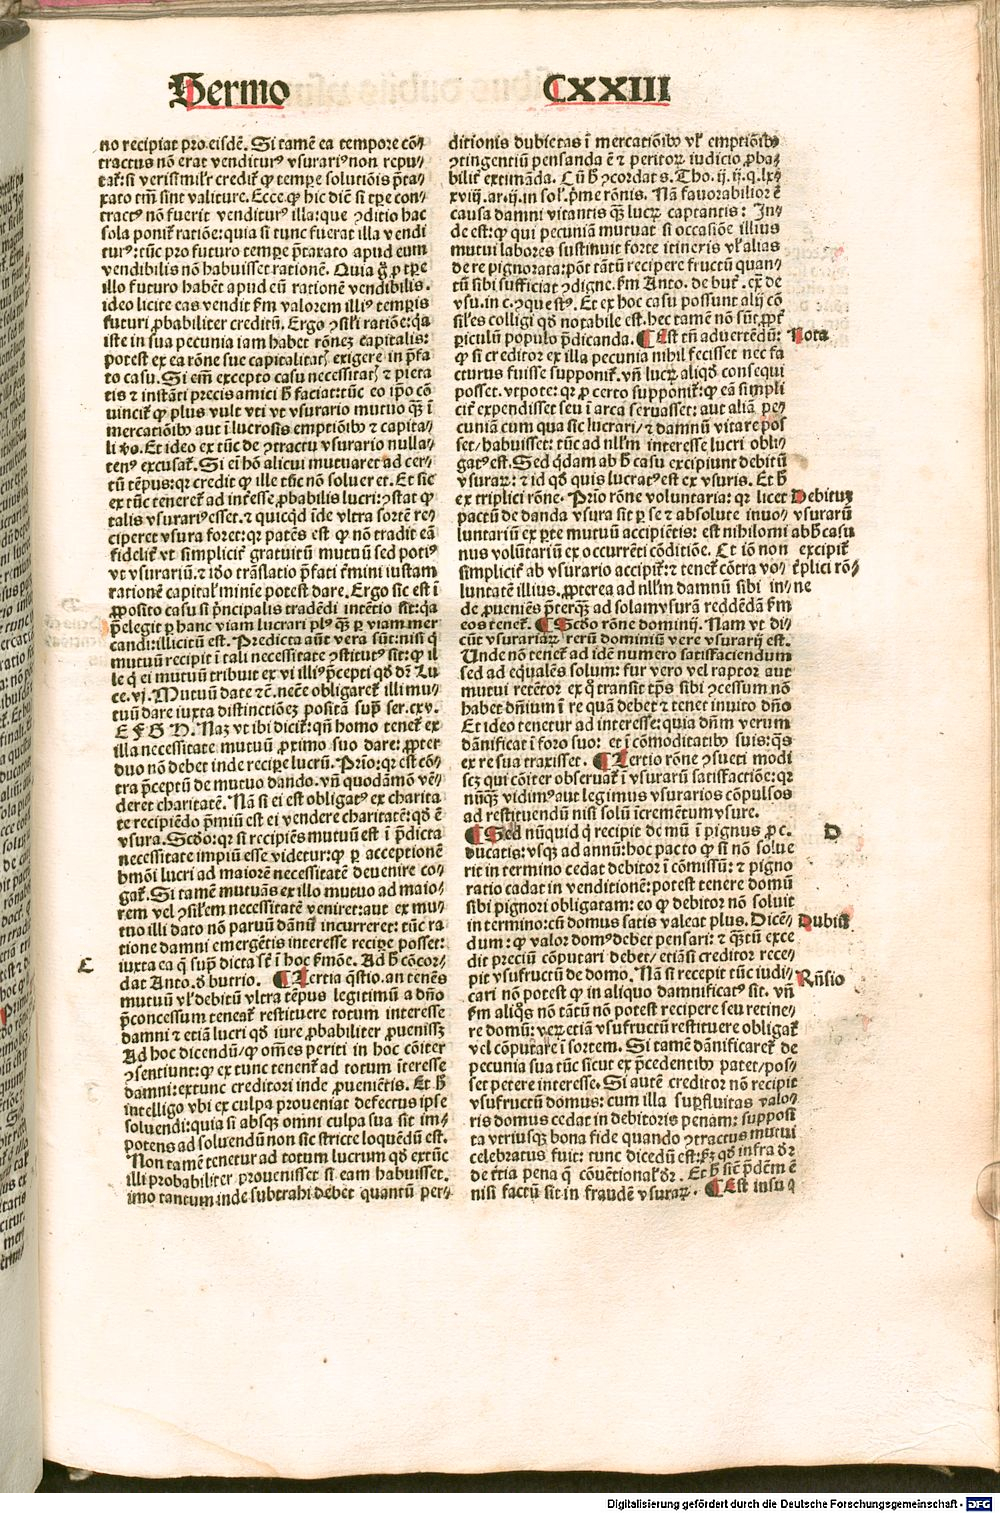 Sermo CXXIII
no recipiat pro eisdē. Si tamē ea tempore cō⸗
tractus nō erat venditurꝰ vsurariꝰ non repu⸗
tat᷑: si verisimilʳ credit᷑ ꝙ tempe solutiōis p̄ta⸗
xato tm̄ sint valiture. Ecce ꝙ hic dic̄ si tp̄e con⸗
tractꝰ nō fuerit venditurꝰ illa: que ꝯditio hac
sola ponit᷑ ratiōe: quia si tunc fuerat illa vendi
turꝰ: tūc pro futuro tempe p̄taxato apud eum
vendibilis nō habuisset rationē. Quia gͦ ꝓ tp̄e
illo futuro habēt apud eū rationē vendibilis.
ideo licite eas vendit s̄m valorem illiꝰ tempis
futuri ꝓbabiliter creditū. Ergo ꝯsili ratiōe: qa
iste in sua pecunia iam habet rōnez capitalis:
potest ex ea rōne sue capitalitatꝭ exigere in p̄fa
to casu. Si em̄ excepto casu necessitatꝭ ⁊ pieta
tis ⁊ instāti precis amici h̄ faciat: tūc eo ipo cō
vincit᷑ ꝙ plus vult vti vt vsurario mutuo qꝫ̄ ī
mercatiōibꝰ aut ī lucrosis emptiōibꝰ ⁊ capita⸗
li v̊o. Et ideo ex tūc de ꝯtractu vsurario nulla⸗
tenꝰ excusat᷑. Si ei hō alicui mutuaret ad cer⸗
tū tēpus: qr credit ꝙ ille tūc nō solueret. Et sic
ex tūc teneret᷑ ad int̄esse ꝓbabilis lucri: ꝯstat ꝙ
talis vsurariꝰ esset. ⁊ quicqd īde vltra sortē re⸗
ciperet vsura foret: qr patēs est ꝙ nō tradit eā
fidelit᷑ vt simplicit᷑ gratuitū mutuū sed potiꝰ
vt vsurariū. ⁊ iō trāslatio p̄fati t̄mini iustam
rationē capitalʳ minie potest dare. Ergo sic est ī
ꝓposito casu si p̄ncipalis tradēdi intētio sit: qa
p̄elegit ꝑ hanc viam lucrari plꝰ qꝫ̄ ꝑ viam mer
candi: illicitū est. Predicta aūt vera sūt: nisi q̇
mutuū recipit ī tali necessitate ꝯstitutꝰ sit: ꝙ il
le q̇ ei mutuū tribuit ex vi illiꝰ p̄cepti qd̄ dr̄ Lu
ce. vj. Mutuū date ⁊c̄. nec̄e obligaret᷑ illi mu⸗
tuū dare iuxta distinctiōeꝫ positā sup̄ ser. cxv.
E F G H. Naꝫ vt ibi dicit᷑: qn̄ homo tenet᷑ ex
illa necessitate mutuū ꝓximo suo dare: ꝓpter
duo nō debet inde recipe lucrū. Prīo: qr est cō⸗
tra p̄ceptū de mutuo dando. vn̄ quodāmō vē⸗
deret charitatē. Nā si ei est obligatꝰ ex charita
te recipiēdo p̄miū est ei vendere charitatē: qd̄ ē
vsura. Scd̄o: qr si recipiēs mutuū est ī p̄dicta
necessitate impiū esse videtur: ꝙ ꝑ acceptionē
hm̄oi lucri ad maiorē necessitatē devenire co⸗
gat᷑. Si tamē mutuās ex illo mutuo ad maio⸗
rem vel ꝯsilem necessitatē veniret: aut ex mu⸗
tuo illi dato nō paruū dānū incurreret: tūc ra
tione damni emergētis interesse recipe posset:
iuxta ea q̄ sup̄ dicta st̄ ī hoc s̄mōe. Ad h̄ cōcor⸗
dat Anto. ď butrio. ¶ Tertia q̄stio. an tenēs
C
mutuū vlʳ debitū vltra tēpus legitimū a dn̄o
p̄concessum teneat᷑ restituere totum interesse
damni ⁊ etiā lucri qd̄ iure ꝓbabiliter ꝓuenissꝫ
Ad hoc dicendū/ ꝙ om̄es periti in hoc cōiter
ꝯsentiunt: ꝙ ex tunc tenent᷑ ad totum īteresse
damni: extunc creditori inde ꝓuenietis. Et h̄
intelligo vbi ex culpa proueniat defectus ipse
soluendi: quia si absqꝫ omni culpa sua sit im⸗
potens ad soluendū non sic stricte loquēdū est.
Non tamē tenetur ad totum lucrum qd̄ extūc
illi probabiliter prouenisset si eam habuisset.
imo tantum inde subtrahi debet quantū per⸗
ditionis dubietas ī mercatiōibꝰ vlʳ emptiōibꝰ
ꝯtingentiū pensanda ē ⁊ peritoꝝ iudicio ꝓba⸗
bilit᷑ extimāda. Cū h̄ ꝯcordat s. Tho. ij. ij. q. lxx
xviij. ar. ij. in sol. p̄me rōnis. Nā fauorabilior ē
causa damni vitantis qꝫ̄ lucꝝ captantis: In⸗
de est: ꝙ qui pecuniā mutuat si occasiōe illius
mutui labores sustinuit forte itineris vlʳ alias
de re pignorata: pōt tātū recipere fructū quan⸗
tū sibi sufficiat ꝯdigne. s̄m Anto. de but᷑. ex̄ de
vsu. in c. ꝯquestꝰ. Et ex hoc casu possunt alij cō
siles colligi qd̄ notabile est. hec tamē nō sūt ꝓpt᷑
ꝑiculū populo p̄dicanda. ¶ Est tn̄ aduertēdū:
Nota
ꝙ si creditor ex illa pecunia nihil fecisset nec fa
cturus fuisse supponit᷑. vn̄ lucꝝ aliqd̄ consequi
posset. vtpote: qr ꝓ certo supponit᷑: ꝙ eā simpli
cit᷑ expendisset seu ī arca seruasset: aut aliā pe⸗
cuniā cum qua sic lucrari/ ⁊ damnū vitare pos
set/ habuisset: tūc ad nllm̄ interesse lucri obli⸗
gatꝰ est. Sed q̇dam ab h̄ casu excipiunt debitū
vsuraꝝ: ⁊ id qd̄ quis lucratꝰ est ex vsuris. Et h̄
ex triplici rōne. Prīo rōne voluntaria: qr licet
Debituꝫ
vsurarū
ab h̄ casu
excipit᷑
t̄plici rō⸗
ne
pactū de danda vsura sit ꝑ se ⁊ absolute inuo⸗
luntariū ex ꝑte mutuū accipiētis: est nihilomi
nus volūtariū ex occurrēti cōditiōe. Et iō non
simplicit᷑ ab vsurario accipit᷑: ⁊ tenet᷑ cōtra vo⸗
luntatē illius. ꝓpterea ad nllm̄ damnū sibi in⸗
de ꝓueniēs p̄terqꝫ̄ ad solam vsurā reddēdā s̄m
eos tenet᷑. ¶ Scd̄o rōne dominij. Nam vt di⸗
cūt vsurariaꝝ rerū dominiū vere vsurarij est.
Unde nō tenet᷑ ad idē numero satisfaciendum
sed ad eq̄ualēs solum: fur vero vel raptor aut
mutui retētor ex q̄ transit tp̄s sibi ꝯcessum nō
habet dn̄ium ī re quā debet ⁊ tenet inuito dn̄o
Et ideo tenetur ad interesse: quia dn̄m verum
dānificat ī foro suo: et ī cōmoditatibꝰ suis: qs
ex re sua traxisset. ¶ Tertio rōne ꝯsueti modi
scꝫ qui cōiter obseruat᷑ ī vsurarū satisfactiōe: qr
nūqꝫ̄ vidimꝰ aut legimus vsurarios cōpulsos
ad restituendū nisi solū īcremētum vsure.
¶ Sed nūquid q̇ recipit de mū ī pignus ꝓ c.
D
ducatis: vsqꝫ ad annū: hoc pacto ꝙ si nō solue
rit in termino cedat debitor ī cōmissū: ⁊ pigno
ratio cadat in venditionē: potest tenere domū
sibi pignori obligatam: eo ꝙ debitor nō soluit
in termino: cū domus satis valeat plus. Dicē⸗
Dubiū
dum: ꝙ valor domꝰ debet pensari: ⁊ qꝫ̄tū exce
dit preciū cōputari debet/ etiā si creditor rece⸗
pit vsufructū de domo. Nā si recepit tūc iudi⸗
Rn̄sio
cari nō potest ꝙ in aliquo damnificatꝰ sit. vn̄
s̄m aliqͦs nō tātū nō potest recipere seu retine⸗
re domū: veꝝ etiā vsufructū restituere obligat᷑
vel cōputare ī sortem. Si tamē dānificaret᷑ de
pecunia sua tūc sicut ex p̄cedentibꝰ patet/ pos⸗
set petere interesse. Si autē creditor nō recipit
vsufructū domus: cum illa suꝑfluitas valo⸗
ris domus cedat in debitoris penam: supposi
ta vtriusqꝫ bona fide quando ꝯtractus mutui
celebratus fuit: tunc dicedū est: s̄ꝫ qd̄ infra dr̄
de t̄tia pena q̄ cōuētional᷑ dr̄. Et h̄ sic̄ p̄dēm ē
nisi factū sit in fraudē vsuraꝝ. ¶ Est insuꝑ
Digitalisierung gefördert durch die Deutsche Forschungsgemeinschaft - DFG